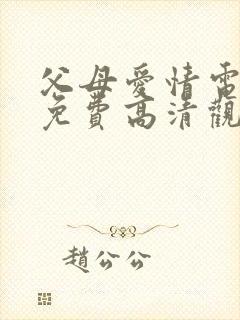 父母愛情電
免費高清觀
趙公公